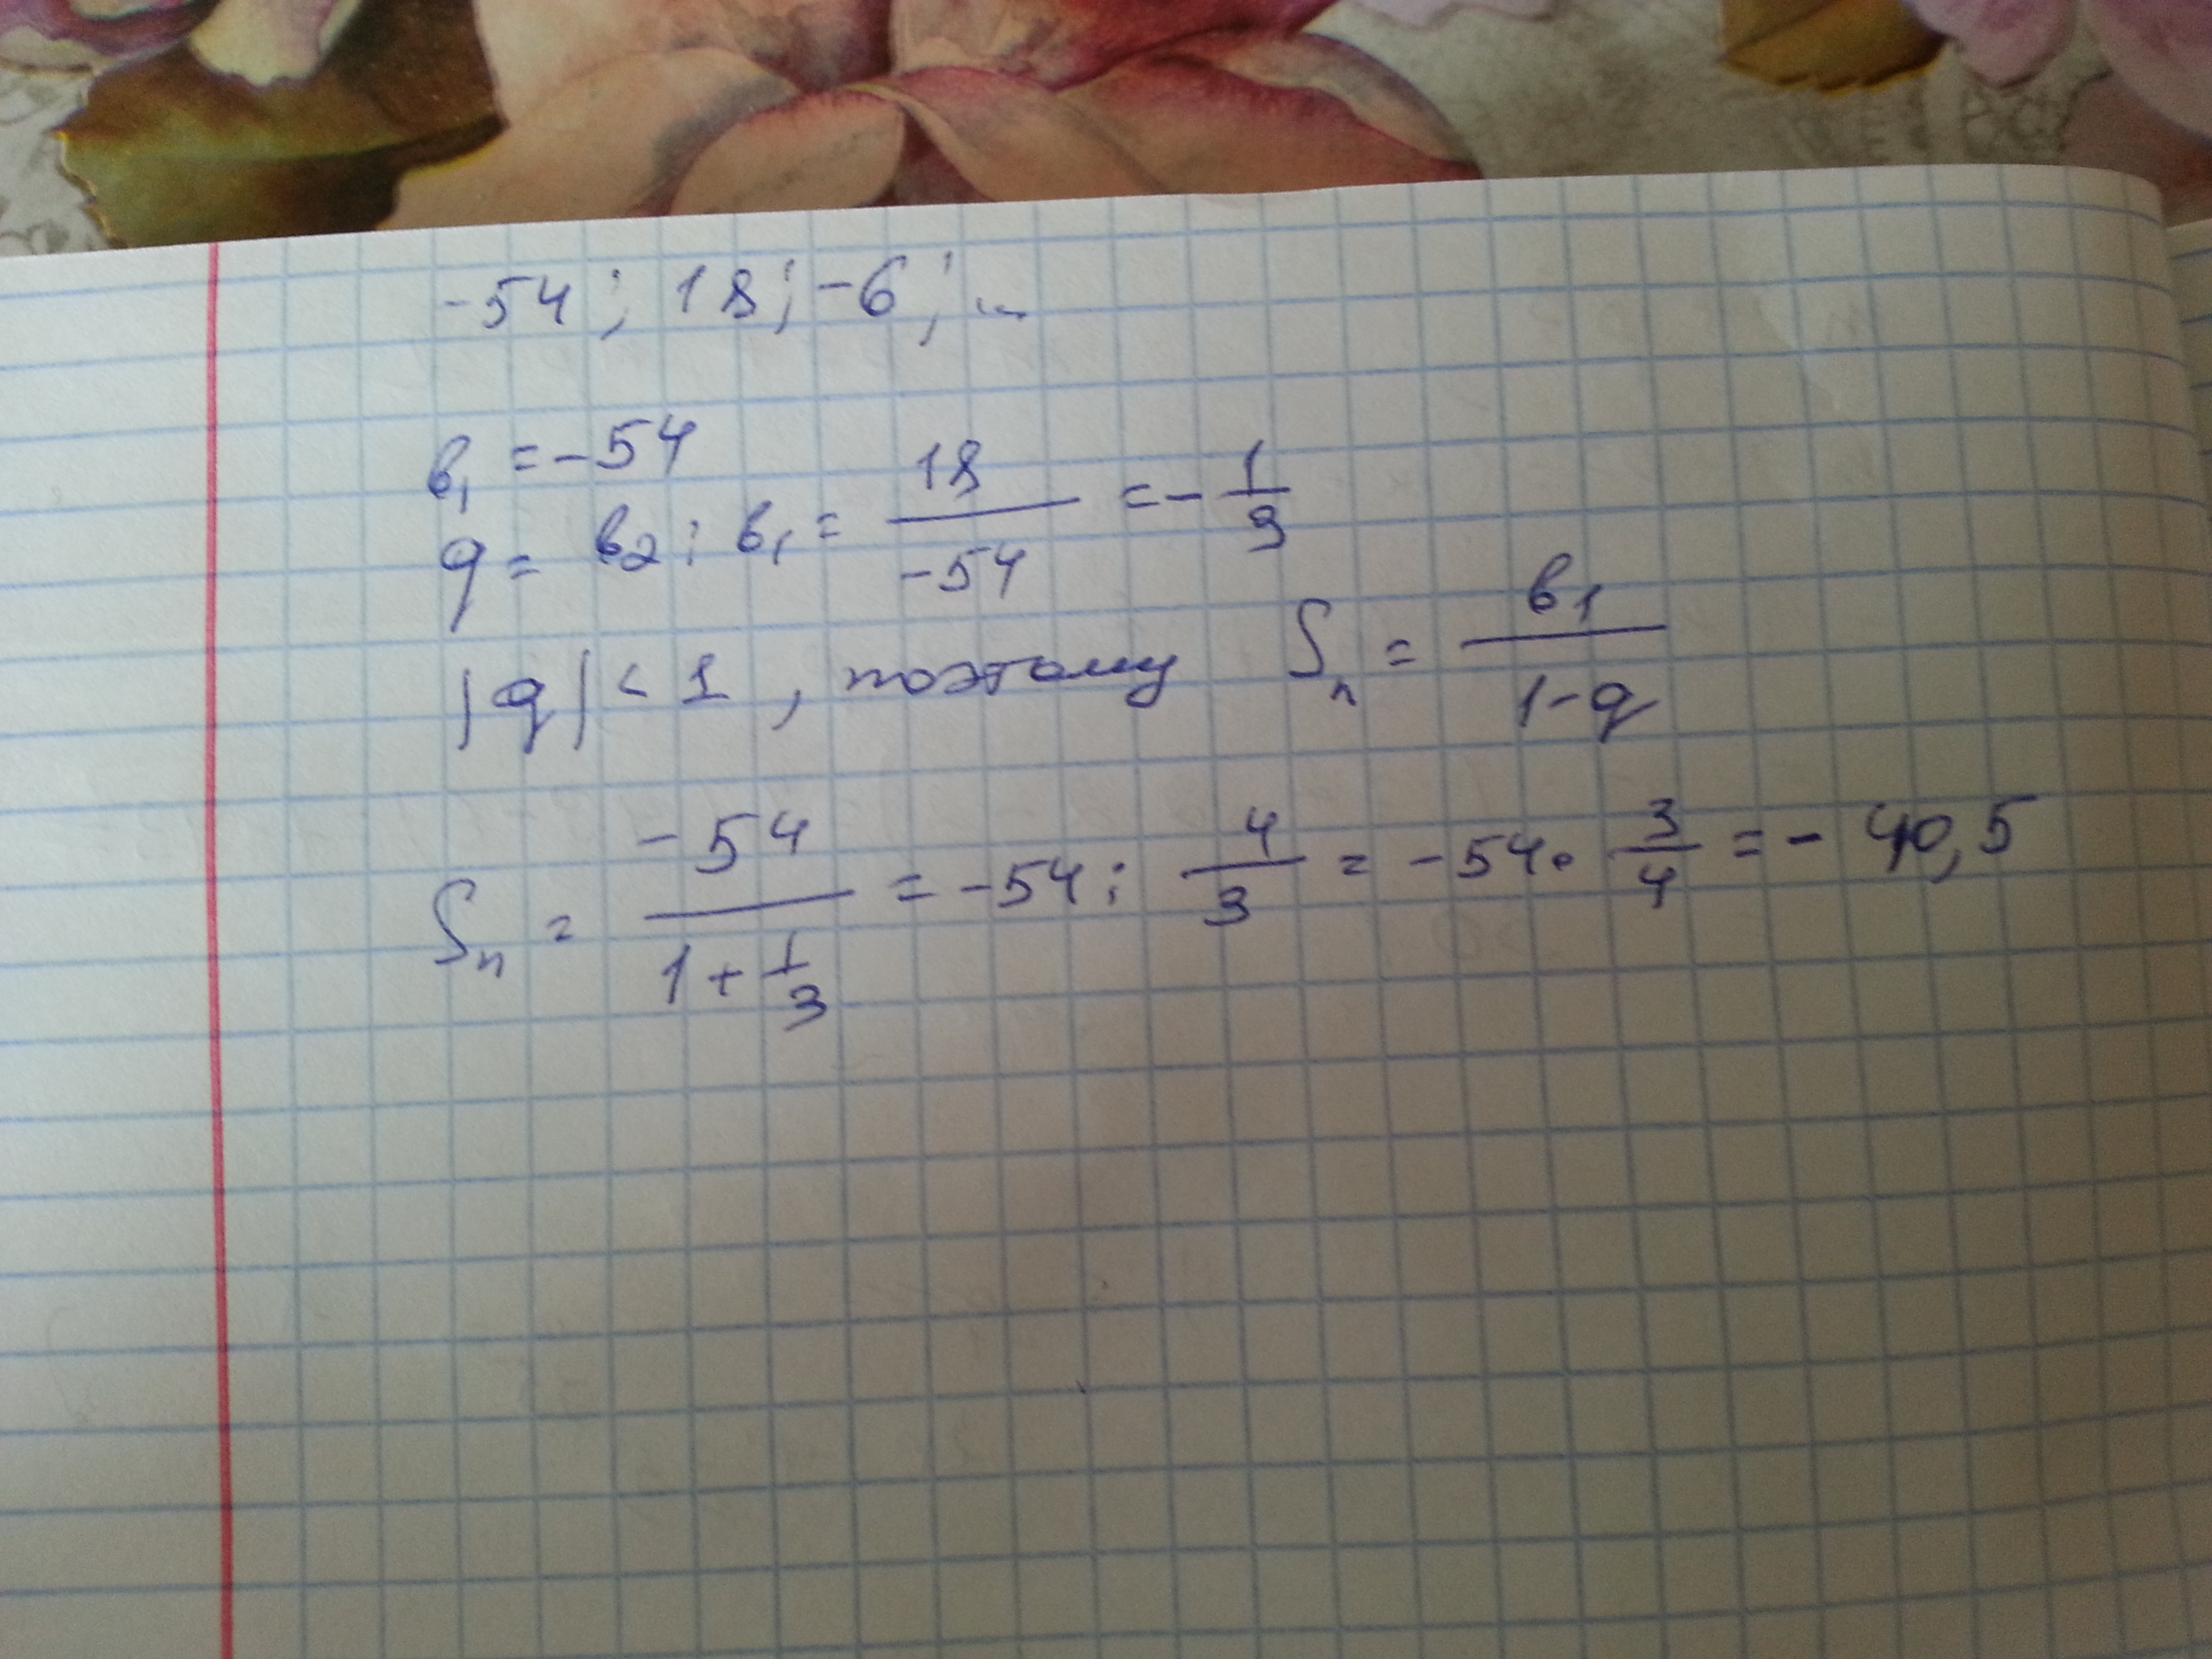 -54; 18; -6; ...
b₁ = -54
q = b₂ : b₁ = 18/-54 = -1/3
|q| < 1, поэтому Sₙ = b₁/1-q
Sₙ = -54/1+1/3 = -54 : 4/3 = -54 · 3/4 = -40,5